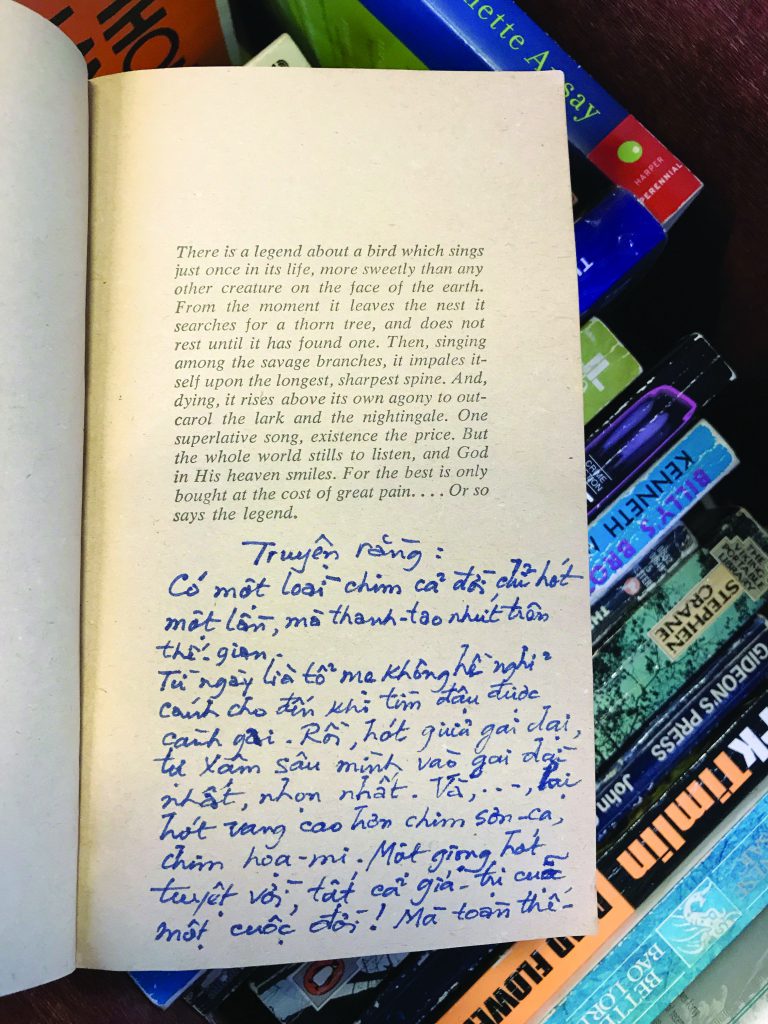 There is a legend about a bird which sings
just once in its life, more sweetly than any
other creature on the face of the earth.
From the moment it leaves the nest it
searches for a thorn tree, and does not
rest until it has found one. Then, singing
among the savage branches, it impales it-
self upon the longest, sharpest spine. And,
dying, it rises above its own agony to out-
carol the lark and the nightingale. One
superlative song, existence the price. But
the whole world stills to listen, and God
in His heaven smiles. For the best is only
bought at the cost of great pain. . . . Or so
says the legend.
Truyện rằng :
Có một loài chim cả đời chỉ hót
một lần, mà thanh-tao nhứt trần
thế-gian.
Từ ngày lià tổ mẹ không hề nghỉ
cánh cho đến khi tìm đậu được
cành gai. Rồi, hót giữa gai dại,
tự xâm sâu mình vào gai dài
nhất, nhọn nhất. Và, ..., lại
hót vang cao hơn chim sơn-ca,
chim họa-mi. Một giọng hót
tuyệt vời, tất cả giá-trị cuả
một cuộc đời! Mà toàn thế-
ette Ansay
HARPER
PERENNIAL
KENNETH
BILLY'S
THE VIKING PORTABLE LIBRARY
STEPHEN
CRANE
GIDEON'S PRESS
John
rkTimlin
FLOWER
BETTE
BAO LORD